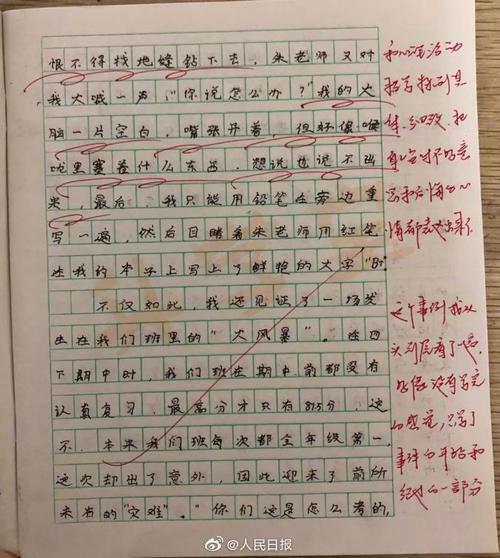 恨不得找地缝钻下去，朱老师又对
我大喊一声，"你说怎么办？"我的大
脑一片空白，嘴张开着，但好像喉
咙里塞着什么东西，想说也说不出
来，最后，我只能用铅笔在旁边重
写一遍，然后目睹着朱老师用红笔
在我的本子上写上了鲜艳的大字
不仅如此，我还见证了一场发
生在我们班里的"大风暴"。在四
下期中时，我们班在期中前都没有
认真复习，最高分才只有 分，这
不，本来我们班每次都全年级第一，
这次却出了意外，因此迎来了前所
未有的"灾难"。"你们这是怎么考的，
和心理活动
描写
体、细致，把
自己
和后悔的心
情都表达出来了
这个事例我从
头到尾看了一遍，
好像没有写完
的感觉，只写了
事情的开始和
经过的一部分
@人民日报